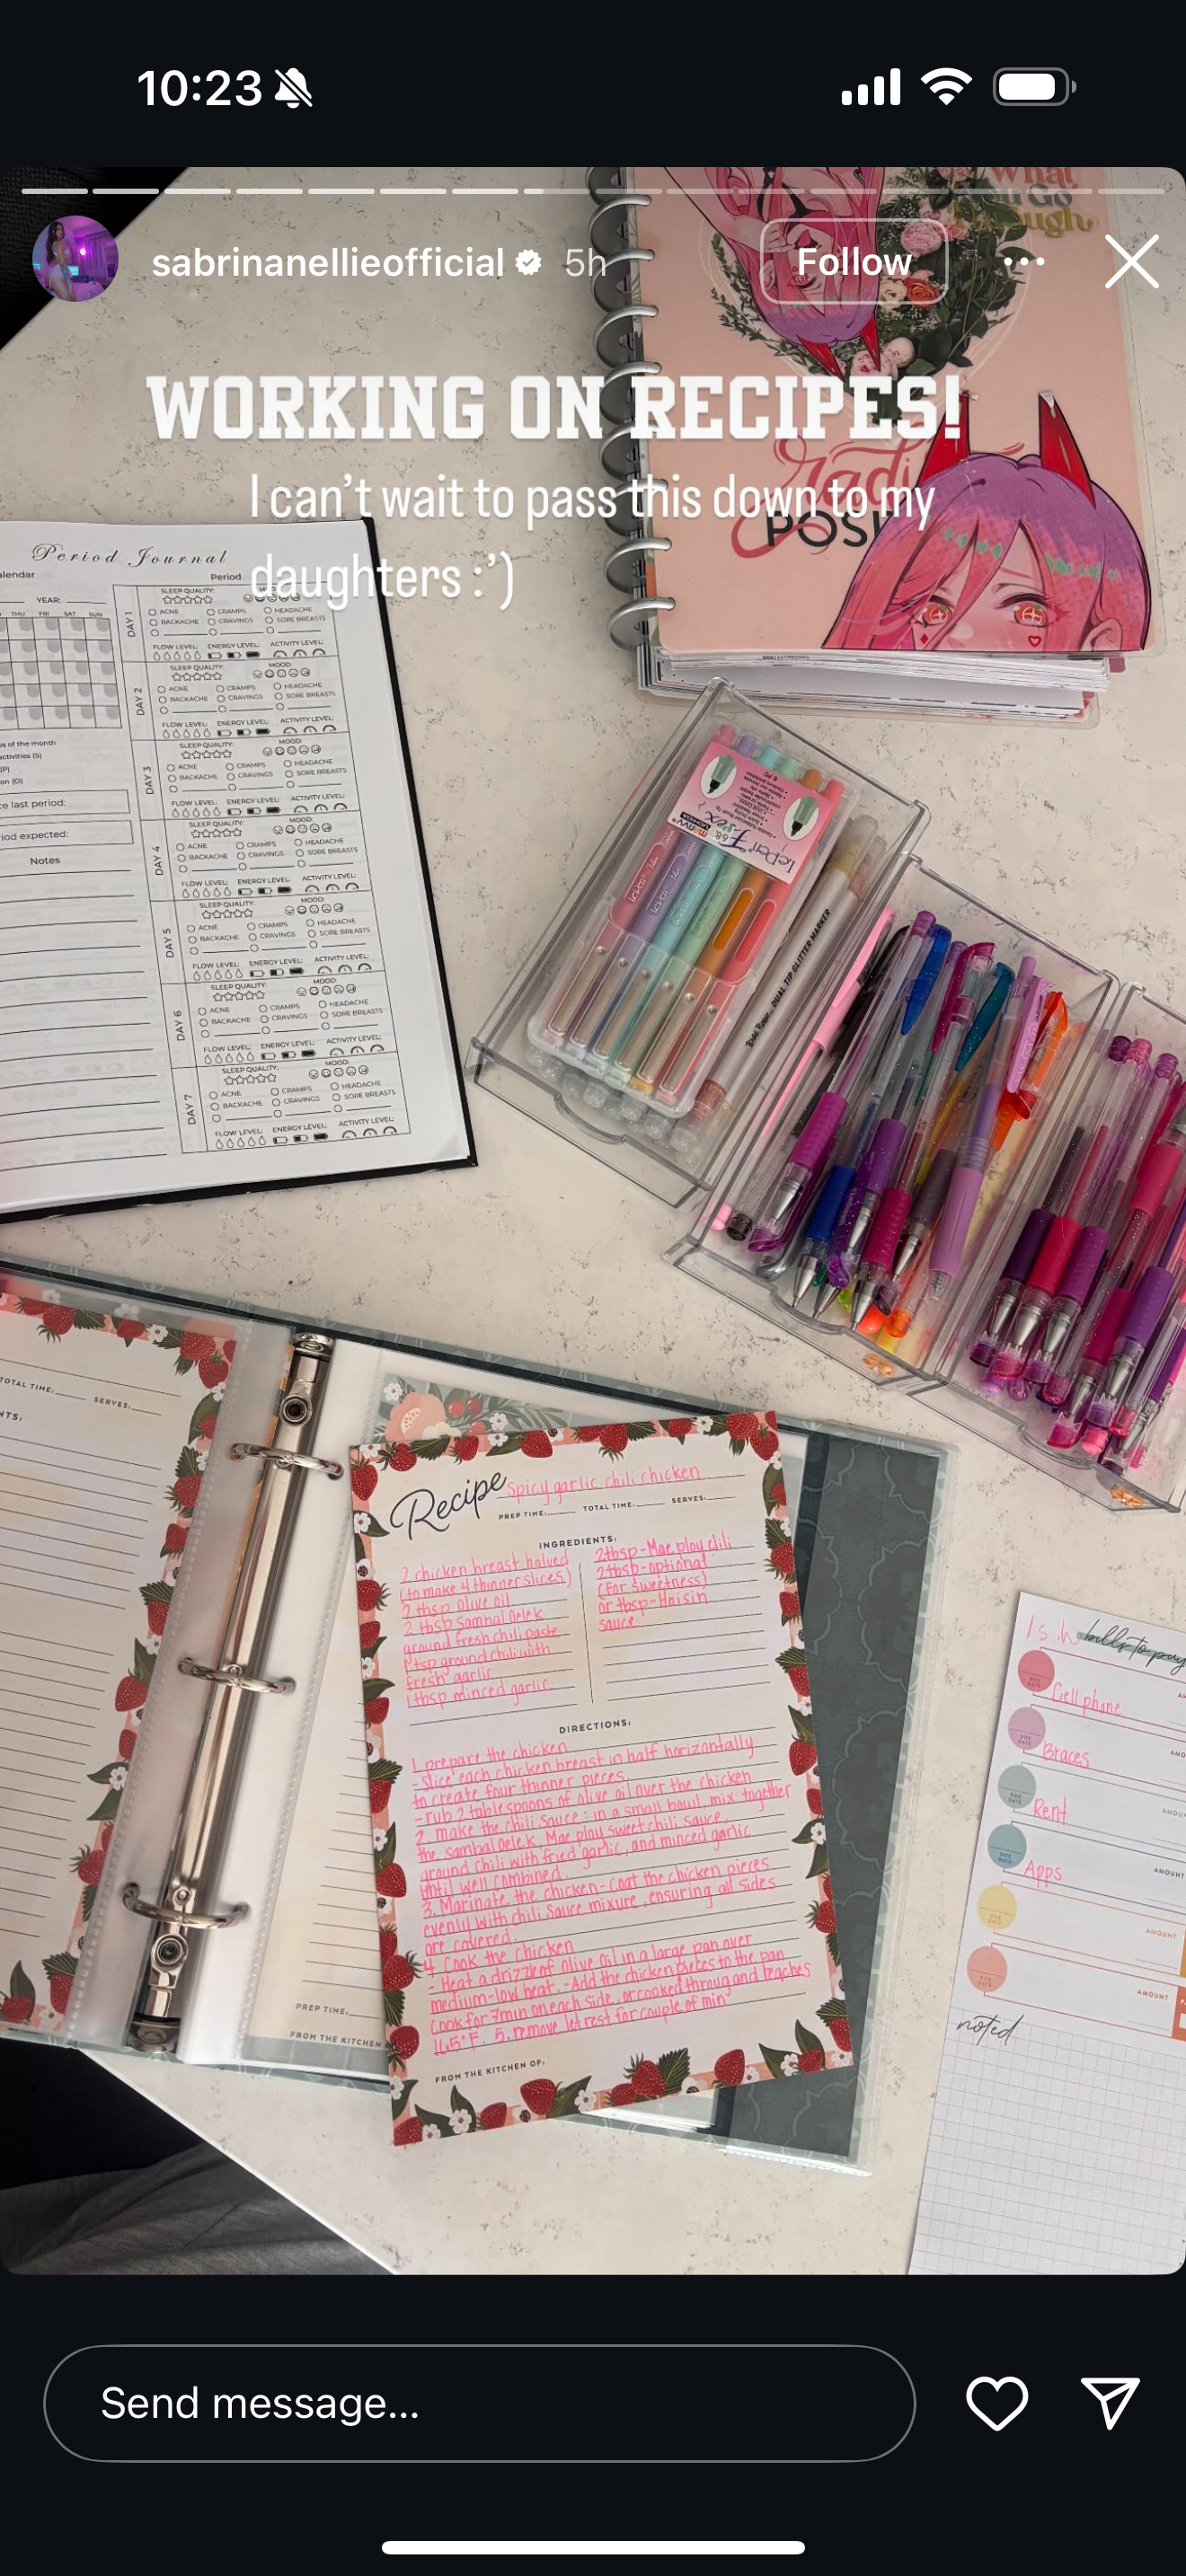 10:23
sabrinanellieofficial 5h
Follow
WORKING ON RECIPES!
I can't wait to pass this down to my
daughters :')
What
Go
rad
POSI
Period Journal
alendar
Period
YEAR:
THU FRI SAT SUN
DAY 1
SLEEP QUALITY:
ACNE CRAMPS HEADACHE
BACKACHE CRAVINGS SORE BREASTS
FLOW LEVEL: ENERGY LEVEL: ACTIVITY LEVEL:
DAY 2
SLEEP QUALITY: MOOD:
ACNE CRAMPS HEADACHE
BACKACHE CRAVINGS SORE BREASTS
FLOW LEVEL: ENERGY LEVEL: ACTIVITY LEVEL:
DAY 3
SLEEP QUALITY: MOOD:
ACNE CRAMPS HEADACHE
BACKACHE CRAVINGS SORE BREASTS
FLOW LEVEL: ENERGY LEVEL: ACTIVITY LEVEL:
DAY 4
SLEEP QUALITY: MOOD:
ACNE CRAMPS HEADACHE
BACKACHE CRAVINGS SORE BREASTS
FLOW LEVEL: ENERGY LEVEL: ACTIVITY LEVEL:
DAY 5
SLEEP QUALITY: MOOD:
ACNE CRAMPS HEADACHE
BACKACHE CRAVINGS SORE BREASTS
FLOW LEVEL: ENERGY LEVEL: ACTIVITY LEVEL:
DAY 6
SLEEP QUALITY: MOOD:
ACNE CRAMPS HEADACHE
BACKACHE CRAVINGS SORE BREASTS
FLOW LEVEL: ENERGY LEVEL: ACTIVITY LEVEL:
DAY 7
SLEEP QUALITY: MOOD:
ACNE CRAMPS HEADACHE
BACKACHE CRAVINGS SORE BREASTS
FLOW LEVEL: ENERGY LEVEL: ACTIVITY LEVEL:
es of the month
activities (S)
(P)
on (O)
ce last period:
iod expected:
Notes
LePen Flex
DUAL TIP GLITTER MARKER
TOTAL TIME: SERVES:
NTS:
PREP TIME:
FROM THE KITCHEN
Recipe Spicy garlic chili chicken
PREP TIME: TOTAL TIME: SERVES:
INGREDIENTS:
2 chicken breast halved
(to make 4 thinner slices)
2 tbsp olive oil
2 tbsp Sambal Oelek
ground fresh chili paste
1 tsp ground chili with
fresh garlic
1 tbsp minced garlic
2tbsp-Mae ploy chili
2tbsp-optional
(for sweetness)
or tbsp-Hoisin
sauce
DIRECTIONS:
1. prepare the chicken
- Slice each chicken breast in half horizontally
to create four thinner pieces.
- rub 2 tablespoons of olive oil over the chicken
2. make the chili sauce: in a small bowl, mix together
the sambal oelek, Mae ploy sweet chili sauce,
ground chili with fried garlic, and minced garlic
until well combined.
3. Marinate the chicken- coat the chicken pieces
evenly with chili sauce mixture, ensuring all sides
are covered.
4. Cook the chicken
- Heat a drizzle of olive oil in a large pan over
medium-low heat. -Add the chicken pieces to the pan
cook for 7min on each side, or cooked throug and reaches
165°F. 5. remove let rest for couple of min
FROM THE KITCHEN OF:
bills to pay
DUE DATE Cell phone
DUE DATE Braces
DUE DATE Rent AMOU
DUE DATE Apps AMOUNT
DUE DATE AMOUNT
DUE DATE AMOUNT
noted
Send message...